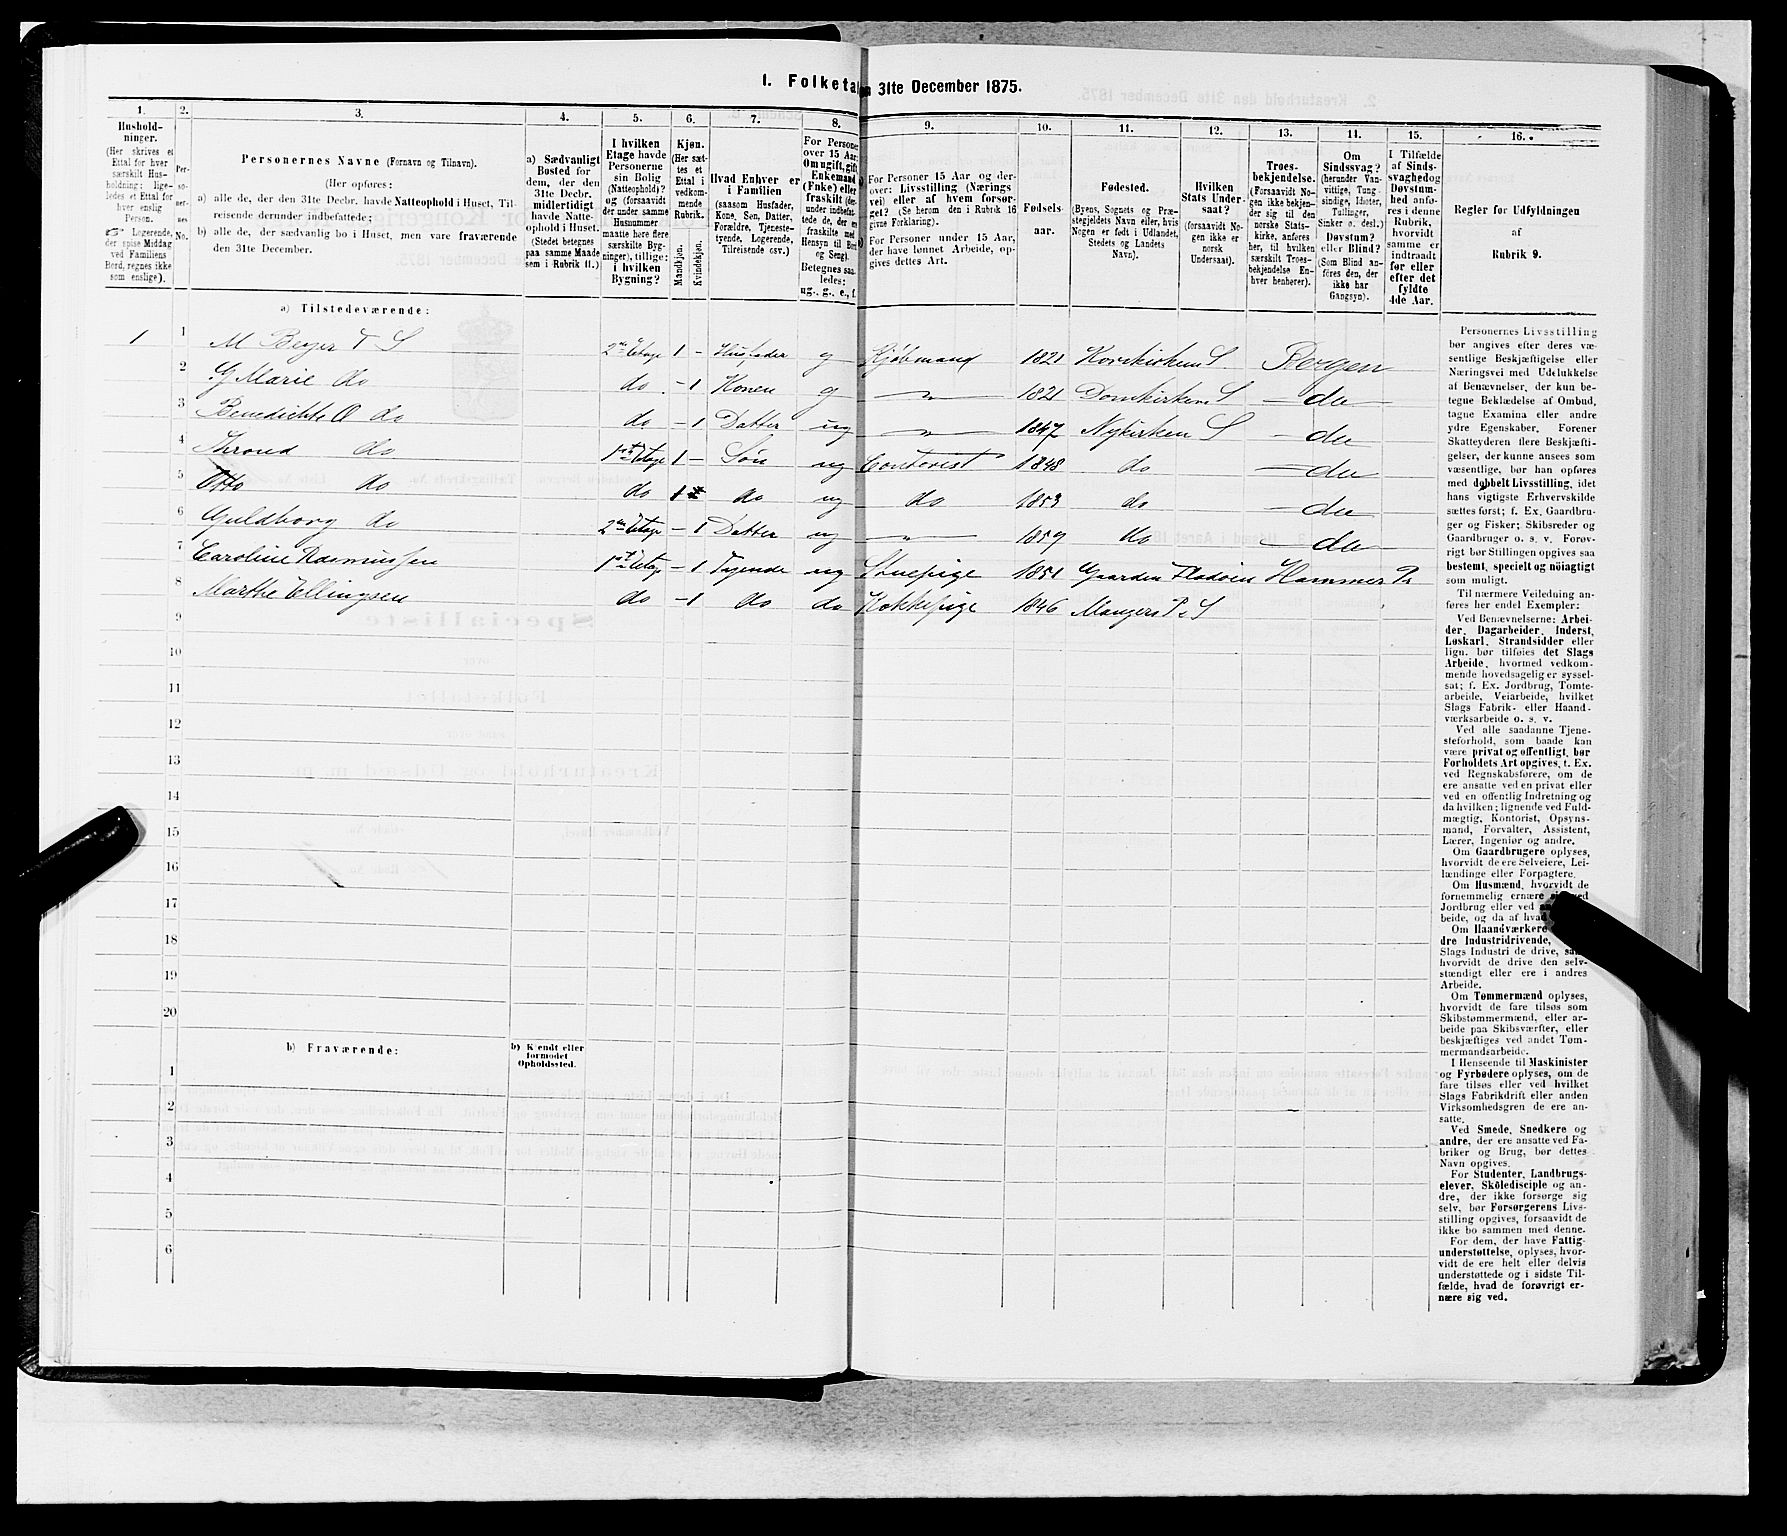 1. Folketal den 31te December 1875.
1. 2. 3. 4. 5. 6. 7. 8. 9. 10. 11. 12. 13. 14. 15. 16.
Husholdninger.
(Her skrives et
Ettal for hver
særskilt Husholdning; ligeledes
et Ettal for
hver enslig
Person.
Logerende,
der spise Middag
ved Familiens
Bord, regnes ikke
som enslige).
Personernes No.
Personernes Navne (Fornavn og Tilnavn).
(Her opføres:
a) alle de, der den 31te Decbr. havde Natteophold i Huset, Tilreisende
derunder indbefattede;
b) alle de, der sædvanlig bo i Huset, men vare fraværende
den 31te December.
a) Sædvanligt
Bosted for
dem, der den
31te Decbr.
midlertidigt
havde Natteophold
i Huset.
(Stedet betegnes
paa samme Maade
som i Rubrik 11.)
I hvilken
Etage havde
Personerne
sin Bolig
(Natteophold)?
og (forsaavidt
der under samme
Husnummer
maatte høre flere
særskilte Bygninger),
tillige:
i hvilken
Bygning?
Kjøn.
(Her sættes
et
Ettal i
vedkommende
Rubrik.
Mandkjøn.
Kvindekjøn.
Hvad Enhver er
i Familien
(saasom Husfader,
Kone, Søn, Datter,
Forældre, Tjenestetyende,
Logerende,
Tilreisende osv.)
For Personer
over 15 Aar:
Om ugift, gift,
Enkemand
(Enke) eller
fraskilt
Betegnes saaledes:
ug., g., e., f.
For Personer 15 Aar og derover:
Livsstilling (Næringsvei)
eller af hvem forsørget?
(Se herom den i Rubrik 16
givne Forklaring).
For Personer under 15 Aar,
der have lønnet Arbeide, opgives
dettes Art.
Fødselsaar.
Fødested.
(Byens, Sognets og Præstegjeldets
Navn eller, hvis
Nogen er født i Udlandet,
Stedets og Landets
Navn).
Hvilken
Stats Undersaat?
(forsaavidt Nogen
ikke er
norsk
Undersaat).
Troesbekjendelse.
(Forsaavidt Nogen
ikke bekjender
sig til den
norske Statskirke,
anføres
her, til hvilken
særskilt Troesbekjendelse
Enhver
henhører).
Om
Sindssvag?
(herunder Vanvittige,
Tungsindige,
Idioter,
Tullinger,
Sinker o. desl.)
Døvstum?
eller Blind?
(Som Blind anføres
den, der
ikke har
Gangsyn).
I Tilfælde
af Sindssvaghed
og
Døvstumhed
anføres
i denne
Rubrik,
hvorvidt
samme er
indtraadt
før eller
efter det
fyldte
4de Aar.
Regler for Udfyldningen
af
Rubrik 9.
a) Tilstedeværende:
1 1 M Beyer T S 2den Etage 1 – Husfader g Kjøbmand 1821 Korskirkens S. Bergen
2 G Marie do do – 1 Konen g – " – 1821 Domkirkens S – do –
3 Benedichte O do do – 1 Datter ug – " – 1847 Nykirken S – do
4 Thrond do 1ste Etage 1 – Søn ug Contorist 1848 do – do
5 Otto do do 1 do ug do 1853 do – do
6 Guldborg do 2den Etage – 1 Datter ug – " – 1859 do – do –
7 Caroline Rasmussen 1ste Etage – 1 Tyende ug Stuepige 1851 Gaarden Fladøen Hammer Pr
8 Marthe Ellingsen do – 1 do do Kokkepige 1846 Mangers P. S
9
10
11
12
13
14
15
16
17
18
19
20
b) Fraværende:
b) Kjendt eller
formodet
Opholdssted.
1
2
3
4
5
6
Personernes Livsstilling
bør angives efter deres væsentlige
Beskjæftigelse eller
Næringsvei med Udelukkelse
af Benævnelser, der kun betegne
Beklædelse af Ombud,
tagne Examina eller andre
ydre Egenskaber. Forener
Skatteyderen flere Beskjæftigelser,
der kunne ansees som
væsentlige, bør han opføres
med dobbelt Livsstilling, idet
hans vigtigste Erhvervskilde
sættes først; f. Ex. Gaardbruger
og Fisker; Skibsreder og
Gaardbruger o. s. v. Forøvrigt
bør Stillingen opgives saa
bestemt, specielt og nøiagtigt
som muligt.
Til nærmere Veiledning anføres
her endel Exempler:
Ved Benævnelserne: Arbeider,
Dagarbeider, Inderst,
Løskarl, Strandsidder eller
lign. bør tilføies det Slags
Arbeide, hvormed vedkommende
hovedsagelig er sysselsat;
f. Ex. Jordbrug, Tomtearbeide,
Veiarbeide, hvilket
Slags Fabrik- eller Haandværksarbeide
o. s. v.
Ved alle saadanne Tjenesteforhold,
som baade kan
være privat og offentligt, bør
Forholdets Art opgives, f. Ex.
ved Regnskabsførere, om de
ere ansatte ved en privat eller
ved en offentlig Indretning og
da hvilken; lignende ved Fuldmægtig,
Kontorist, Opsynsmand,
Forvalter, Assistent,
Lærer, Ingeniør og andre.
Om Gaardbrugere oplyses,
hvorvidt de ere Selveiere, Leilændinge
eller Forpagtere.
Om Husmænd, hvorvidt de
fornemmelig ernære
Jordbrug eller ved
beide, og da af hvad
Om Haandværkere
dre Industridrivende,
Slags Industri de drive,
hvorvidt de drive den selvstændigt
eller ere i andres
Arbeide.
Om Tømmermænd oplyses,
hvorvidt de fare tilsøs som
Skibstømmermænd, eller arbeide
paa Skibsværfter, eller
beskjæftiges ved andet Tømmermandsarbeide.
I Henseende til Maskinister
og Fyrbødere oplyses, om de
fare tilsøs eller ved hvilket
Slags Fabrikdrift eller anden
Virksomhedsgren de ere ansatte.
Ved Smede, Snedkere og
andre, der ere ansatte ved Fabriker
og Brug, bør dettes
Navn opgives.
For Studenter, Landbrugselever,
Skoledisciple og andre,
der ikke forsørge sig
selv, bør Forsørgerens Livsstilling
opgives, forsaavidt de
ikke bo sammen med denne.
For dem, der have Fattigunderstøttelse,
oplyses, hvorvidt
de ere helt eller delvis
understøttede og i sidste Tilfælde,
hvad de forøvrigt ernære
sig ved.